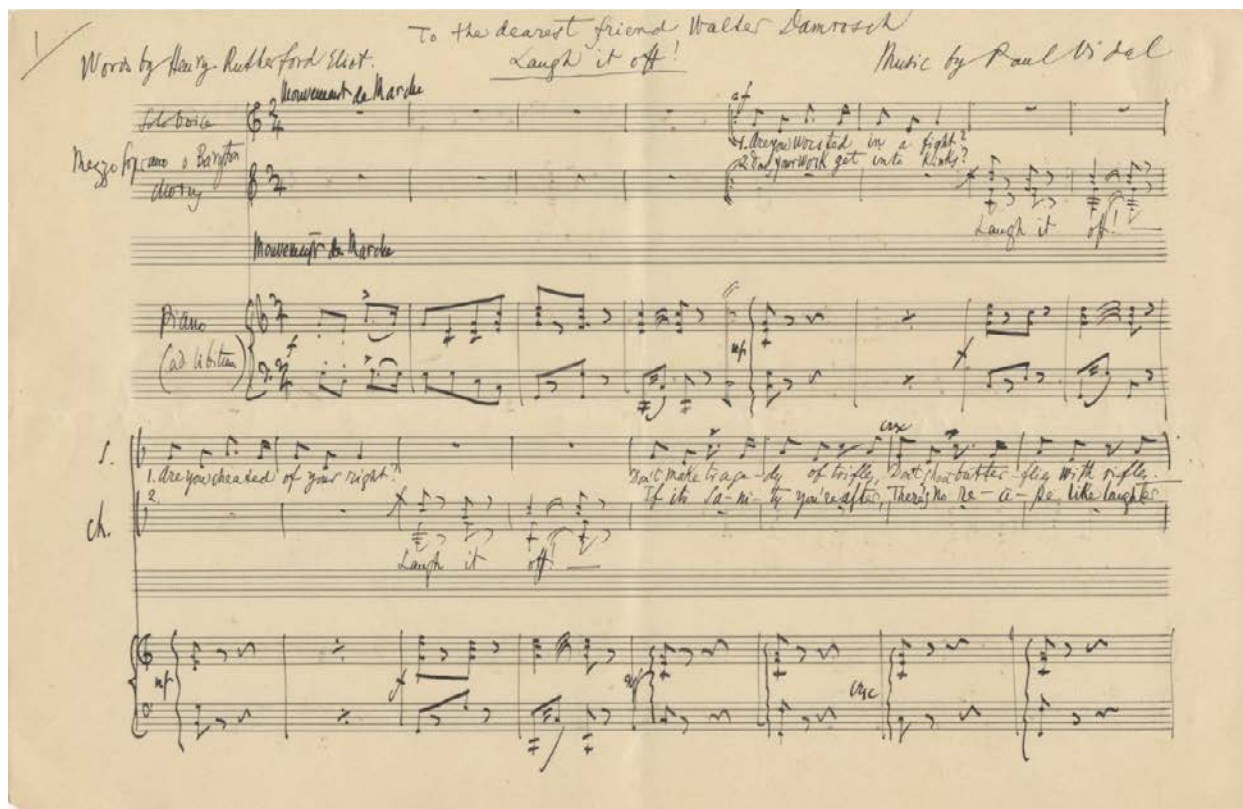 1/
To the dearest friend Walter Damrosch
Words by Henry Rutherford Eliot.
Laugh it off!
Music by Paul Vidal
Mouvement de Marche
Solo Voice
Mezzo Soprano o Baryton
mf
1. Are you worsted in a fight?
2. Does your work get into kinks?
chorus
f
Laugh it off!
Mouvement de Marche
Piano
(ad libitum)
f
mp
f
S.
cresc
1. Are you cheated of your right?
Don't make trage-dy of trifles, Don't shoot butter-flies with rifles
2.
If its Sa-ni-ty you're after, There's no re-ci-pe like laughter
Ch.
f
Laugh it off!
mp
f
mf
cresc